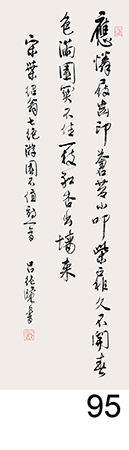 應憐屐齒印蒼苔小叩柴扉久不開春
色滿園關不住一枝紅杏出墻來
宋葉紹翁七絕游園不值詩一首
呂書
95